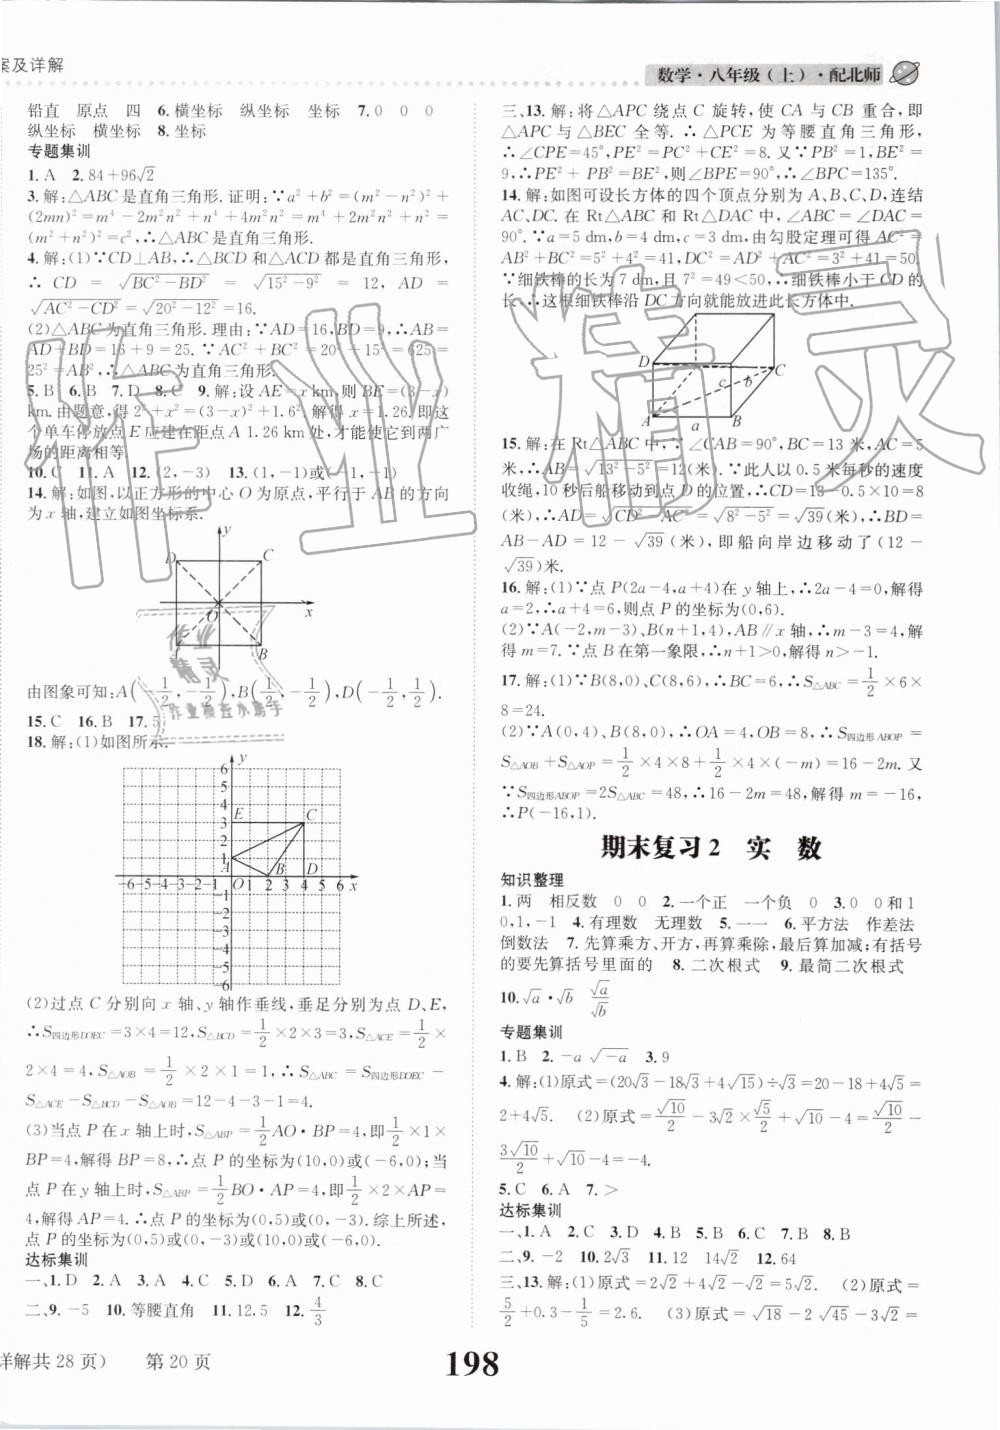 案及详解
数学·八年级(上)·配北师
铅直　原点　四　6.横坐标　纵坐标　坐标　7.0　0　0
纵坐标　横坐标　8.坐标
专题集训
1.A　2.84+96√2
3.解:△ABC是直角三角形.证明:∵a²+b²=(m²-n²)²+
(2mn)²=m⁴-2m²n²+n⁴+4m²n²=m⁴+2m²n²+n⁴=
(m²+n²)²=c²,∴△ABC是直角三角形.
4.解:(1)∵CD⊥AB,∴△BCD和△ACD都是直角三角形,
∴CD=√(BC²-BD²)=√(15²-9²)=12, AD=
√(AC²-CD²)=√(20²-12²)=16.
(2)△ABC为直角三角形.理由:∵AD=16,BD=9,∴AB=
AD+BD=16+9=25.∵AC²+BC²=20²+15²=625=
25²=AB²,∴△ABC为直角三角形.
5.B　6.B　7.D　8.C　9.解:设AE=x km,则BE=(3-x)
km.由题意,得2²+x²=(3-x)²+1.6².解得x=1.26.即这
个单车停放点E应建在距点A 1.26 km处,才能使它到两广
场的距离相等.
10.C　11.A　12.(2,-3)　13.(1,-1)或(-1,-1)
14.解:如图,以正方形的中心O为原点,平行于AB的方向
为x轴,建立如图坐标系.
y
D C
O x
A B
由图象可知:A(-1/2,-1/2),B(1/2,-1/2),D(-1/2,1/2).
15.C　16.B　17.5
18.解:(1)如图所示.
y
6
5
4
E 3 C
2
1
A
-6-5-4-3-2-1 O 1 2 3 4 5 6 x
B D
-1
-2
-3
-4
-5
-6
(2)过点C分别向x轴、y轴作垂线,垂足分别为点D、E,
∴S四边形DOEC=3×4=12,S△BCD=1/2×2×3=3,S△ACE=1/2×
2×4=4,S△AOB=1/2×2×1=1,∴S△ABC=S四边形DOEC-
S△ACE-S△BCD-S△AOB=12-4-3-1=4.
(3)当点P在x轴上时,S△ABP=1/2AO·BP=4,即1/2×1×
BP=4,解得BP=8,∴点P的坐标为(10,0)或(-6,0);当
点P在y轴上时,S△ABP=1/2BO·AP=4,即1/2×2×AP=
4,解得AP=4.∴点P的坐标为(0,5)或(0,-3).综上所述,
点P的坐标为(0,5)或(0,-3)或(10,0)或(-6,0).
达标集训
一、1.D　2.A　3.D　4.C　5.D　6.C　7.C　8.C
二、9.-5　10.等腰直角　11.12.5　12.4/3
三、13.解:将△APC绕点C旋转,使CA与CB重合,即
△APC与△BEC全等.∴△PCE为等腰直角三角形,
∴∠CPE=45°,PE²=PC²+CE²=8.又∵PB²=1,BE²=
9,∴PE²+PB²=BE²,则∠BPE=90°,∴∠BPC=135°.
14.解:如图可设长方体的四个顶点分别为A、B、C、D,连结
AC、DC.在Rt△ABC和Rt△DAC中,∠ABC=∠DAC=
90°.∵a=5 dm,b=4 dm,c=3 dm,由勾股定理可得AC²=
AB²+BC²=5²+4²=41,DC²=AD²+AC²=9+41=50.
∵细铁棒的长为7 dm,且7²=49<50,∴细铁棒小于CD的
长,∴这根细铁棒沿DC方向就能放进此长方体中.
D C
c b
A a B
15.解:在Rt△ABC中,∵∠CAB=90°,BC=13米,AC=5
米,∴AB=√(13²-5²)=12(米).∵此人以0.5米每秒的速度
收绳,10秒后船移动到点D的位置,∴CD=13-0.5×10=8
(米),∴AD=√(CD²-AC²)=√(8²-5²)=√39(米),∴DB=
AB-AD=12-√39(米),即船向岸边移动了(12-
√39)米.
16.解:(1)∵点P(2a-4,a+4)在y轴上,∴2a-4=0,解得
a=2,∴a+4=6,则点P的坐标为(0,6).
(2)∵A(-2,m-3)、B(n+1,4),AB∥x轴,∴m-3=4,解
得m=7.∵点B在第一象限,∴n+1>0,解得n>-1.
17.解:(1)∵B(8,0)、C(8,6),∴BC=6,∴S△ABC=1/2×6×
8=24.
(2)∵A(0,4)、B(8,0),∴OA=4,OB=8,∴S四边形ABOP=
S△AOB+S△AOP=1/2×4×8+1/2×4×(-m)=16-2m.又
∵S四边形ABOP=2S△ABC=48,∴16-2m=48,解得m=-16,
∴P(-16,1).
期末复习2　实　数
知识整理
1.两　相反数　0　0　2.一个正　一个负　0　3.0　0和1
0,1,-1　4.有理数　无理数　5.一一　6.平方法　作差法
倒数法　7.先算乘方、开方,再算乘除,最后算加减;有括号
的要先算括号里面的　8.二次根式　9.最简二次根式
10.√a·√b　√a/√b
专题集训
1.B　2.-a√-a　3.9
4.解:(1)原式=(20√3-18√3+4√15)÷√3=
2+4√5.　(2)原式=√10/2-3√2×√5/2+√10-4=√10/2-
3√10/2+√10-4=-4.
5.C　6.A　7.>
达标集训
一、1.A　2.C　3.D　4.B　5.B　6.C　7.D　8.C
二、9.-2　10.2√3　11.12　14√2　12.64
三、13.解:(1)原式=2√2+4√2-√2=5√2.　(2)原式=
5/2+0.3-1/5=2.6.　(3)原式=√18-2√45-3√2=
详解共28页)　第20页
198
作业精灵
作业精灵
作业检查小助手